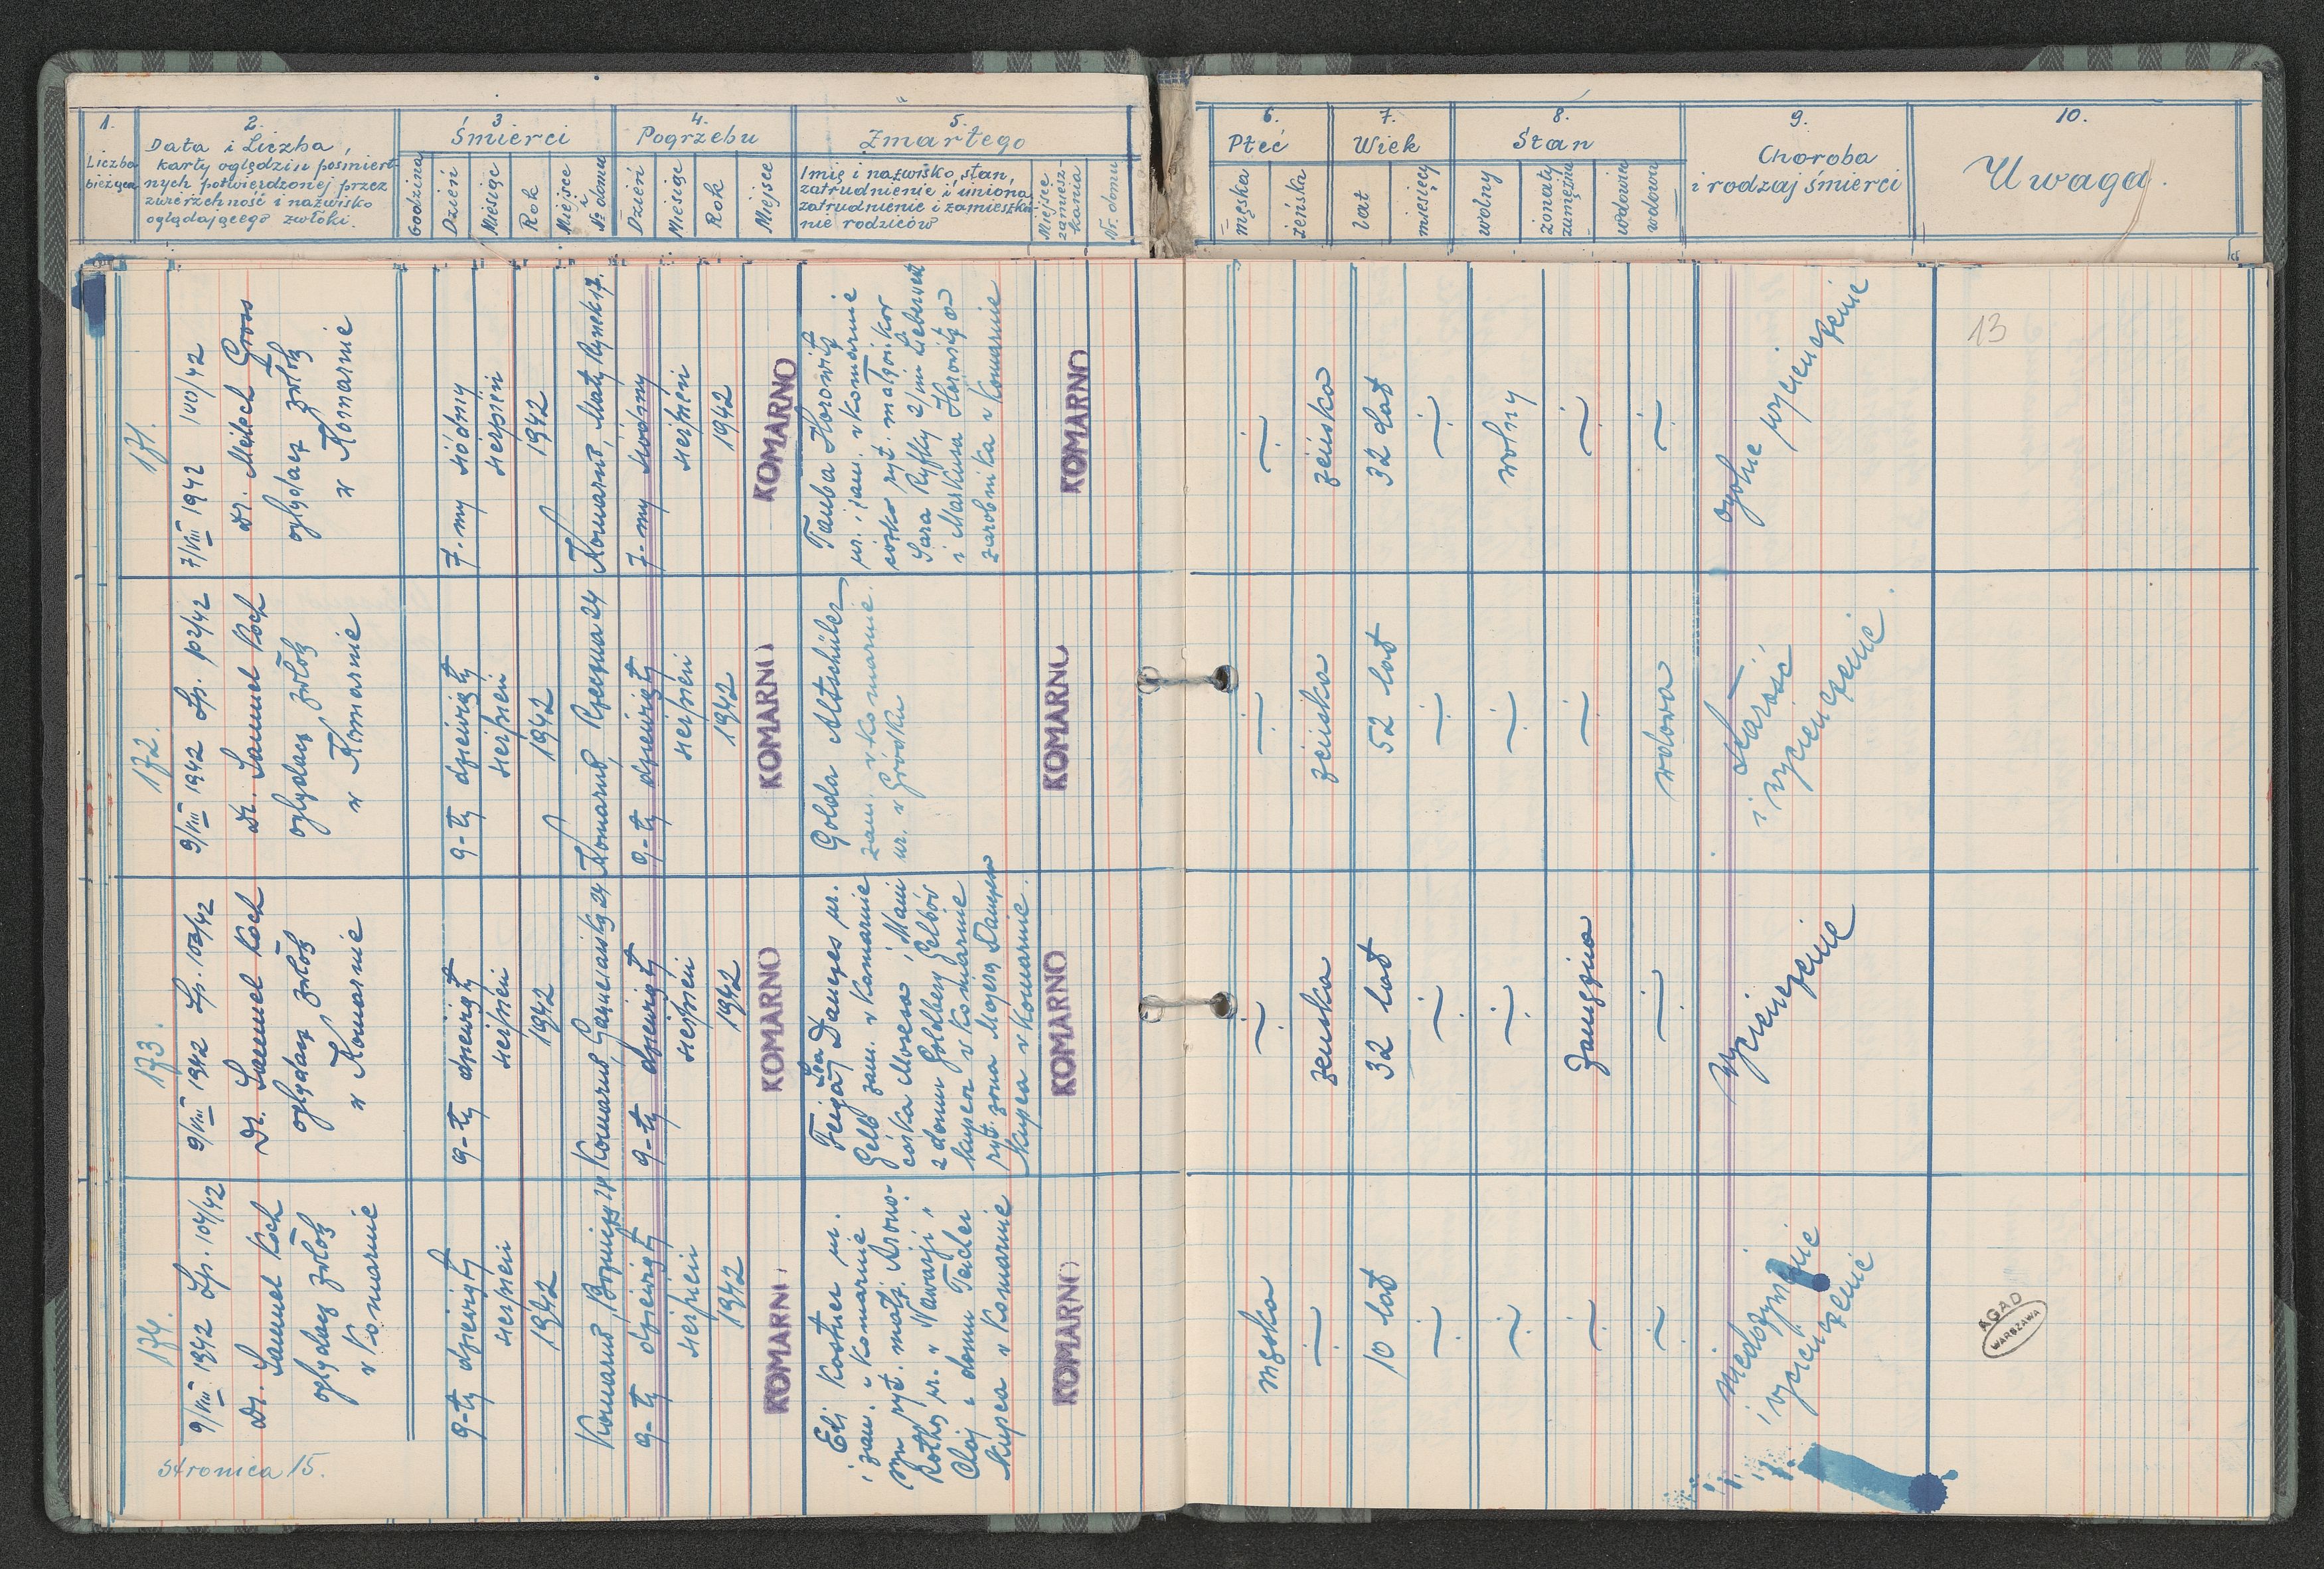 1.
Liczba
bieżąca
2.
Data i Liczba,
karty oględzin pośmiert-
nych potwierdzonej przez
zwierzchność i nazwisko
oglądającego zwłoki.
3
Śmierci
Godzina
Dzień
Miesiąc
Rok
Miejsce
i
Nº domu
4.
Pogrzebu
Dzień
Miesiąc
Rok
Miejsce
5.
Zmarłego
Imię i nazwisko, stan,
zatrudnienie i imiona,
zatrudnienie i zamieszka-
nie rodziców
Miejsce
zamiesz-
kania
Nr. domu
6.
Płeć
męska
żeńska
7.
Wiek
lat
miesięcy
8.
Stan
wolny
żonaty
zamężna
wdowiec
wdowa
9.
Choroba
i rodzaj śmierci
10.
Uwaga.
13
171.
7/VIII 1942
Dr. Gross
oglądacz zwłok
w Komarnie
7-my siódmy
sierpień
1942
Komarno, Mały Rynek 17.
7-my siódmy
sierpień
1942
KOMARNO
Tauba Horowitz
ur. i zam. w Komarnie
córka ryt. małżonków
Sara Ryfky 2/im
i Markusa Horowitza
zarobnika w Komarnie
KOMARNO
żeńska
32 lat
wolny
ogólne wycieńczenie
172.
9/VIII 1942 Lp. 102/42
Dr. Samuel Koch
oglądacz zwłok
w Komarnie
9-ty dziewiąty
sierpień
1942
Komarno, Rzeczna 24
9-ty dziewiąty
sierpień
1942
KOMARNO
Golda Altschüler
zam. w Komarnie.
ur. w Gródku
KOMARNO
żeńska
52 lat
wdowa
starość
i wycieńczenie.
173.
9/VIII 1942 Lp. 103/42
Dr. Samuel Koch
oglądacz zwłok
w Komarnie
9-ty dziewiąty
sierpień
1942
Komarno, 24
9-ty dziewiąty
sierpień
1942
KOMARNO
Lea
Feiga ur.
Gelb zam. w Komarnie
córka Mosesa i Mani
z domu Goldberg Gelbów
kupca w Komarnie
ryt. żona Majera
kupca w Komarnie.
KOMARNO
żeńska
32 lat
Zamężna
Wycieńczenie
174.
9/VIII 1942 Lp. 104/42
Dr. Samuel Koch
oglądacz zwłok
w Komarnie
9-ty dziewiąty
sierpień
1942
Komarno, 24
9-ty dziewiąty
sierpień
1942
KOMARNO
Eli Kostner ur.
i zam. w Komarnie
syn ryt. małż. Arono-
ur. w Nawarji
Chaj z domu Teicher
kupca w Komarnie
KOMARNO
męska
10 lat
i wycieńczenie
stronica 15.
AGAD
WARSZAWA